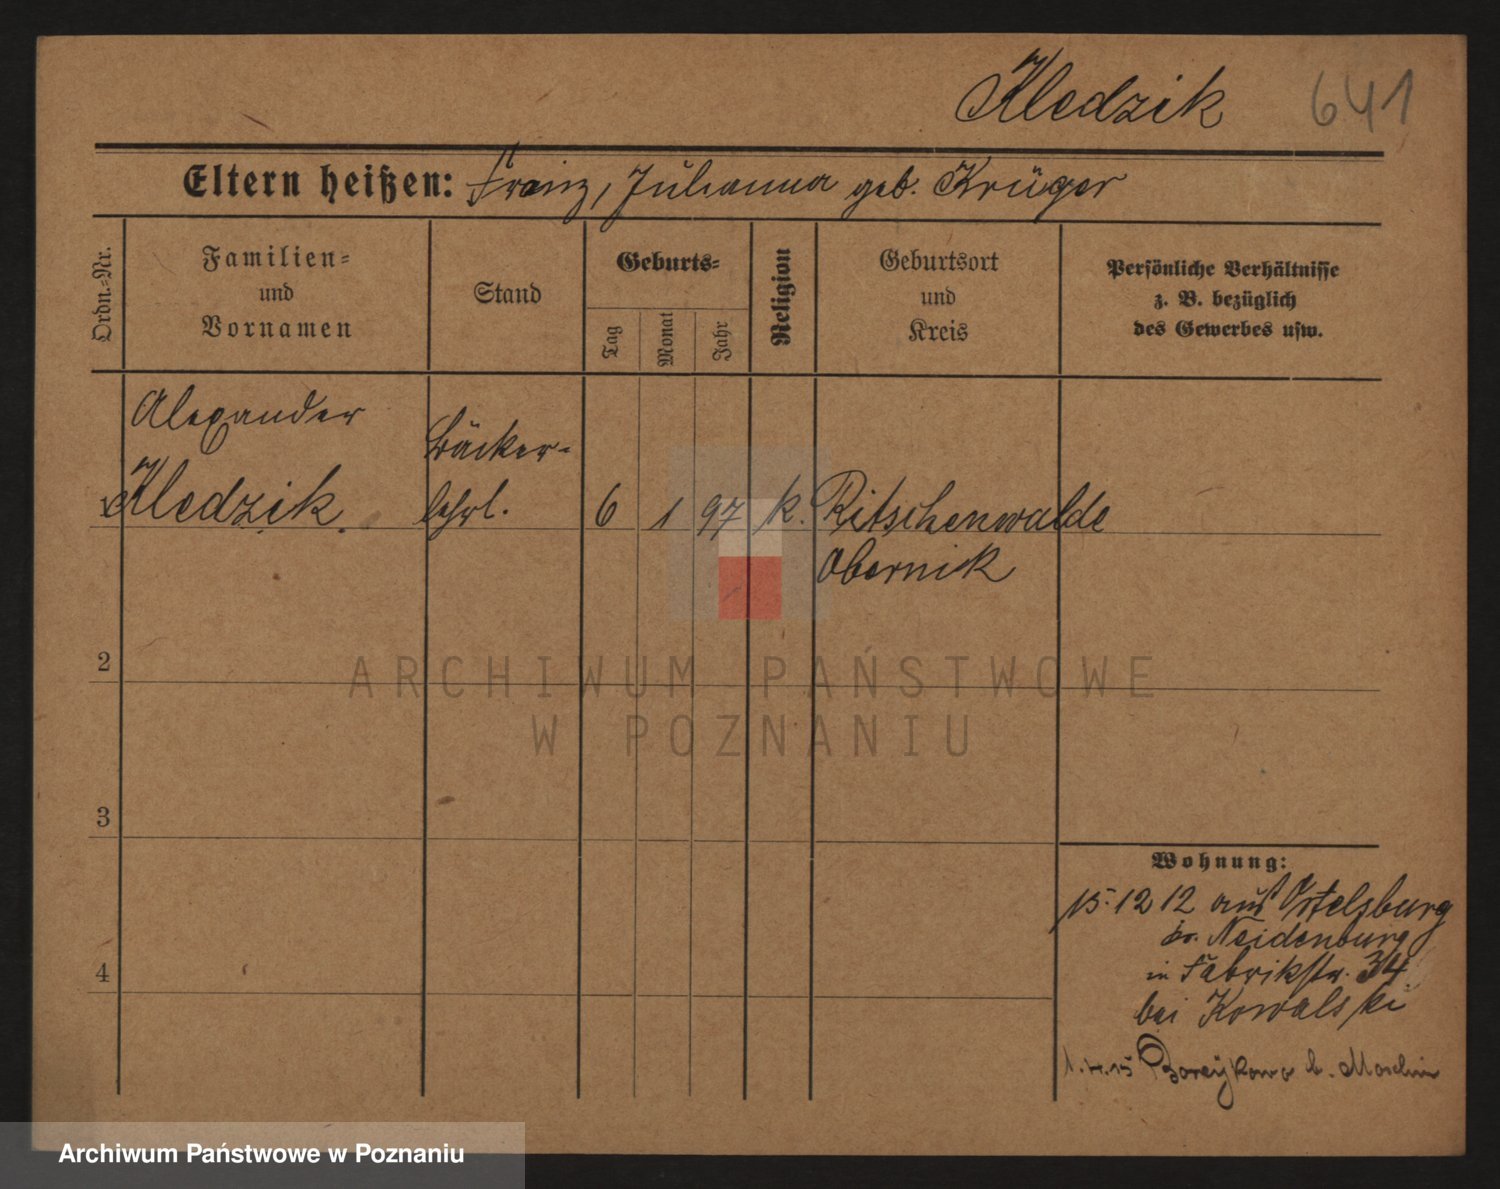 Kledzik 641
Eltern heißen: Franz, Julianna geb. Krüger
Ordn.-Nr.
Familien-
und
Vornamen
Stand
Geburts-
Tag
Monat
Jahr
Religion
Geburtsort
und
Kreis
Persönliche Verhältnisse
z. B. bezüglich
des Gewerbes usw.
Alexander
Kledzik
Bäcker-
lehrl.
1
6 1 97 k. Ritschenwalde
Obornik
2
3
4
Wohnung:
15.12 12 aus Ortelsburg
Neidenburg
in Fabrikstr. 34
bei Kowalski
1.4.15 b. Moschin
ARCHIWUM PAŃSTWOWE
W POZNANIU
Archiwum Państwowe w Poznaniu